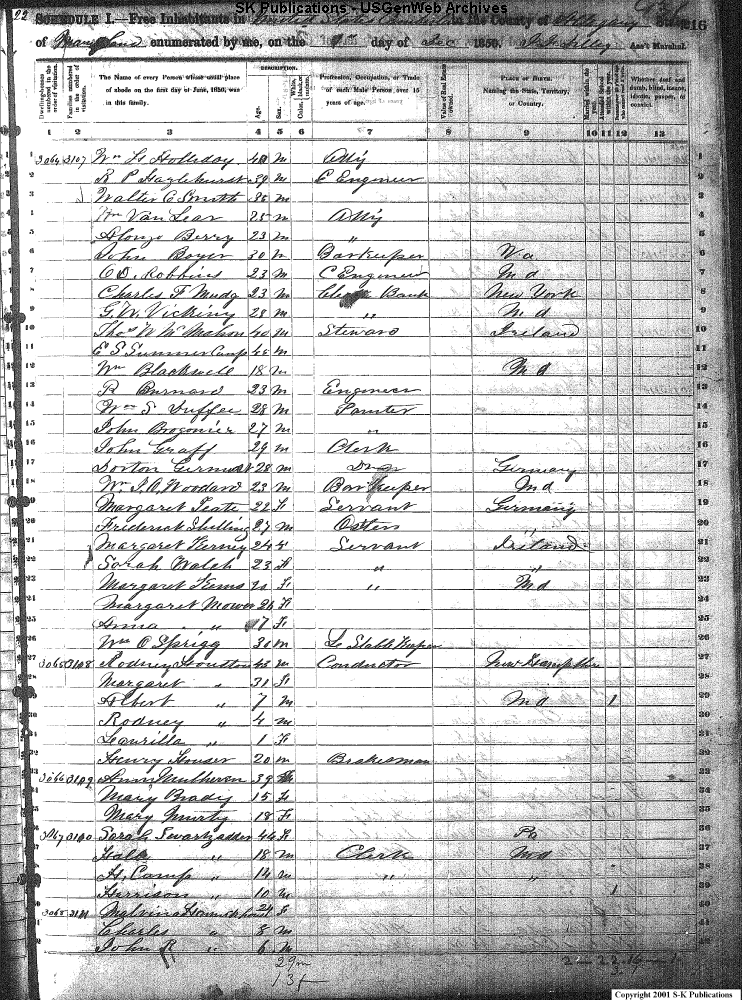 SK Publications - USGenWeb Archives
22
SCHEDULE I.—Free Inhabitants in in the County of Allegany State 216
of Maryland enumerated by me, on the day of Dec 1850. Ass't Marshal.
DESCRIPTION.
Dwelling-houses numbered in the order of visitation.
Families numbered in the order of visitation.
The Name of every Person whose usual place of abode on the first day of June, 1850, was in this family.
Age.
Sex.
White, black, or mulatto.
Profession, Occupation, or Trade of each Male Person over 15 years of age.
Value of Real Estate owned.
PLACE OF BIRTH. Naming the State, Territory, or Country.
Married within the year.
Whether deaf and dumb, blind, insane, idiotic, pauper, or convict.
1 2 3 4 5 6 7 8 9 10 11 12 13
1 3064 3107 Wm L Holleday 40 m Atty
2 R P Hazlehurst 39 m C Engineer
3 Walter C Smith 35 m
4 Wm Van Lear 25 m Atty
5 Alonzo Berry 23 m "
6 John Boyer 30 m Barkeeper Va
7 C D. Robbins 23 m C Engineer Md
8 Charles F Mudg 23 m Clerk Bank New York
9 G. W. Vicking 28 m " Md
10 Thos W McMahon 40 m Steward Ireland
11 E S Summer Camp 45 m
12 Wm Blackwell 18 m Md
13 R Burnard 23 m Engineer
14 Wm S Duffee 28 m Painter
15 John Brogonier 27 m "
16 John Graff 29 m Clerk
17 Dorton 28 m Germany
18 Wm J. A. Woodard 23 m Barkeeper Md
19 Margaret Teate 22 F Servant Germany
20 Frederick Shelling 27 m Ostler "
21 Margaret Kerney 24 F Servant Ireland
22 Sorah Walsh 23 F " "
23 Margaret Kems F " Md
24 Margaret Mower 26 F
25 Anna " 7 F
26 Wm O Sprigg 30 m L Stable Keeper
27 3065 3108 Rodney Houston 43 m Conductor New Hampshire
28 Margaret " 31 F
29 Albert " 7 m Md 1
30 Rodney " 4 m
31 Laurilla " 1 F
32 Henry Houser 20 m Brakesman
33 3066 3109 Ann Mulheren 39 F
34 Mary Brady 15 F
35 Mary Murty 18 F
36 3067 3110 Sarah Swartzadder 44 F Pa
37 " 18 m Clerk Md
38 H. Camp " 14 m " "
39 Harrison " 10 m 1
40 3068 3111 Malvina 24 F
41 Charles " 8 m
42 John R " 6 m
29 m
13 f
Copyright 2001 S-K Publications